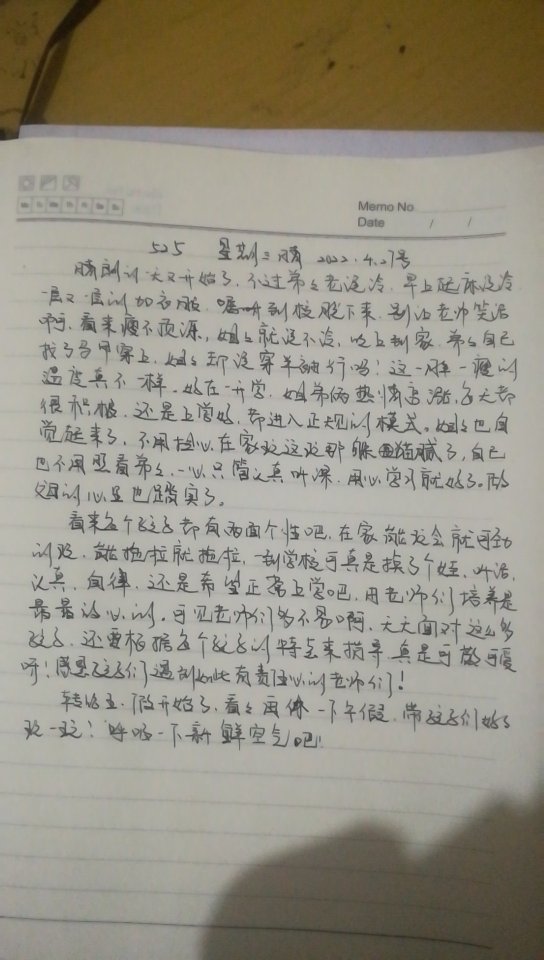 Memo No
Date / /
525 星期三 晴 2022.4.27号
晴朗的一天又开始了,不过弟弟老说冷,早上起床说冷
一层又一层的加衣服,嘱咐到校脱下来,别让老师笑话
啊,看来瘦不顶源,姐姐就说不冷,晚上到家弟弟自己
找了马甲穿上,姐姐却说穿半袖行吗!这一胖一瘦的
温度真不一样。好在一开学,姐弟俩热情高涨,每天都
很积极,还是上学好,都进入正规的模式。姐姐也自
觉起来了,不用担心在家玩这玩那
也不用照看弟弟,一心只管认真听课,用心学习就好了。
父母的心里也踏实了。
看来每个孩子都有两面个性吧,在家能玩会就可劲
的玩,能拖拉就拖拉,一到学校可真是换了个娃,听话,
认真,自律,还是希望正常上学吧,由老师们培养是
最最放心的。可见老师们多不易啊,天天面对这么多
孩子,还要根据每个孩子的特点来指导,真是可敬可爱
呀!愿孩子们遇到如此有责任心的老师们!
转眼五一假开始了,看看再休一下午假,带孩子们好好
玩一玩!呼吸一下新鲜空气吧!